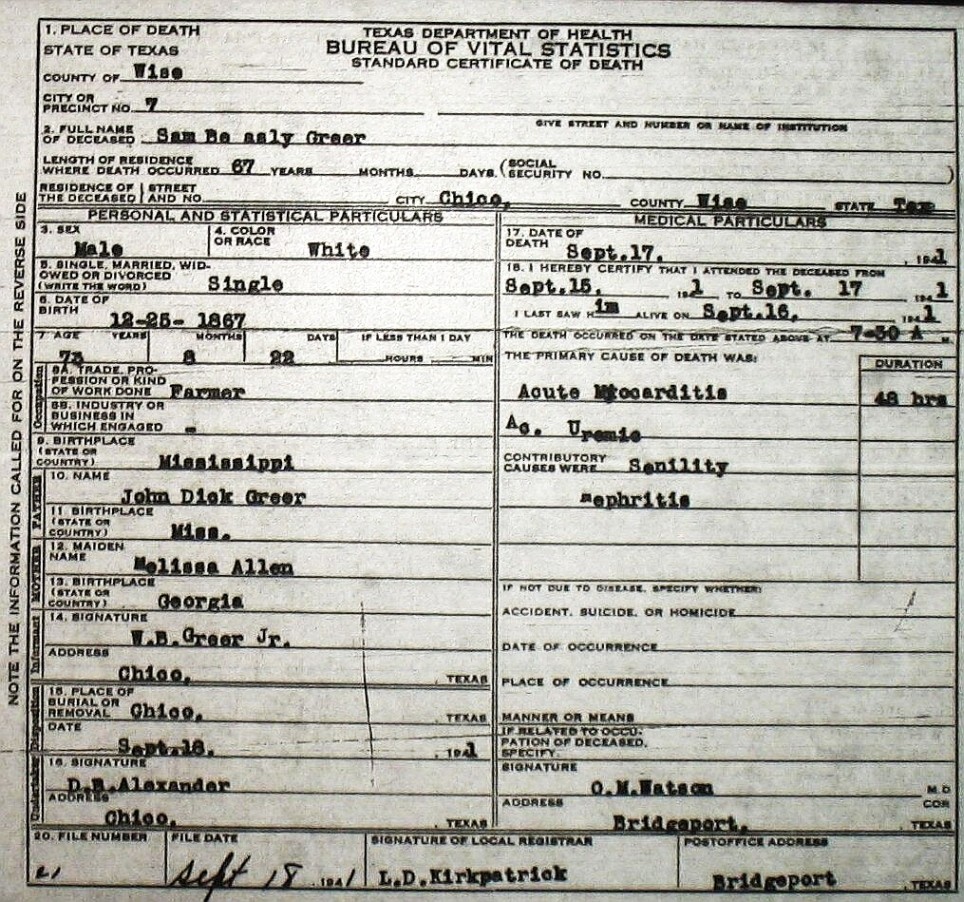 NOTE THE INFORMATION CALLED FOR ON THE REVERSE SIDE
TEXAS DEPARTMENT OF HEALTH
BUREAU OF VITAL STATISTICS
STANDARD CERTIFICATE OF DEATH
1. PLACE OF DEATH
STATE OF TEXAS
COUNTY OF Wise
CITY OR
PRECINCT NO. 7
GIVE STREET AND NUMBER OR NAME OF INSTITUTION
2. FULL NAME
OF DECEASED Sam Be asly Greer
LENGTH OF RESIDENCE
WHERE DEATH OCCURRED 67 YEARS MONTHS DAYS. (SOCIAL SECURITY NO. )
RESIDENCE OF THE DECEASED STREET AND NO. CITY Chico, COUNTY Wise STATE Tex
PERSONAL AND STATISTICAL PARTICULARS
3. SEX
Male
4. COLOR
OR RACE White
5. SINGLE, MARRIED, WID-
OWED OR DIVORCED
(WRITE THE WORD) Single
6. DATE OF
BIRTH 12-25- 1867
7 AGE YEARS MONTHS DAYS IF LESS THAN 1 DAY
73 8 22 HOURS MIN
Occupation
8A. TRADE, PRO-
FESSION OR KIND
OF WORK DONE Farmer
8B. INDUSTRY OR
BUSINESS IN
WHICH ENGAGED -
9. BIRTHPLACE
(STATE OR
COUNTRY) Mississippi
FATHER
10. NAME
John Dick Greer
11 BIRTHPLACE
(STATE OR
COUNTRY) Miss.
MOTHER
12. MAIDEN
NAME Melissa Allen
13. BIRTHPLACE
(STATE OR
COUNTRY) Georgia
Informant
14. SIGNATURE
W.B.Greer Jr.
ADDRESS
Chico, , TEXAS
Disposition
15. PLACE OF
BURIAL OR
REMOVAL Chico, , TEXAS
DATE
Sept.18. , 1941
Undertaker
16. SIGNATURE
D.B.Alexander
ADDRESS
Chico, , TEXAS
MEDICAL PARTICULARS
17. DATE OF
DEATH Sept.17. , 1941
18. I HEREBY CERTIFY THAT I ATTENDED THE DECEASED FROM
Sept.15. 1941 TO Sept. 17 1941
I LAST SAW Him ALIVE ON Sept.16, 1941
THE DEATH OCCURRED ON THE DATE STATED ABOVE AT 7-30 A M.
THE PRIMARY CAUSE OF DEATH WAS: DURATION
Acute Myocarditis 48 hrs
Ac. Uremic
CONTRIBUTORY
CAUSES WERE Senility
Nephritis
IF NOT DUE TO DISEASE, SPECIFY WHETHER:
ACCIDENT, SUICIDE, OR HOMICIDE
DATE OF OCCURRENCE
PLACE OF OCCURRENCE
MANNER OR MEANS
IF RELATED TO OCCU-
PATION OF DECEASED,
SPECIFY.
SIGNATURE
O.M.Watson M.D
ADDRESS COR
Bridgeport, , TEXAS
20. FILE NUMBER
21
FILE DATE
Sept 18 . 1941
SIGNATURE OF LOCAL REGISTRAR
L.D.Kirkpatrick
POSTOFFICE ADDRESS
Bridgeport , TEXAS